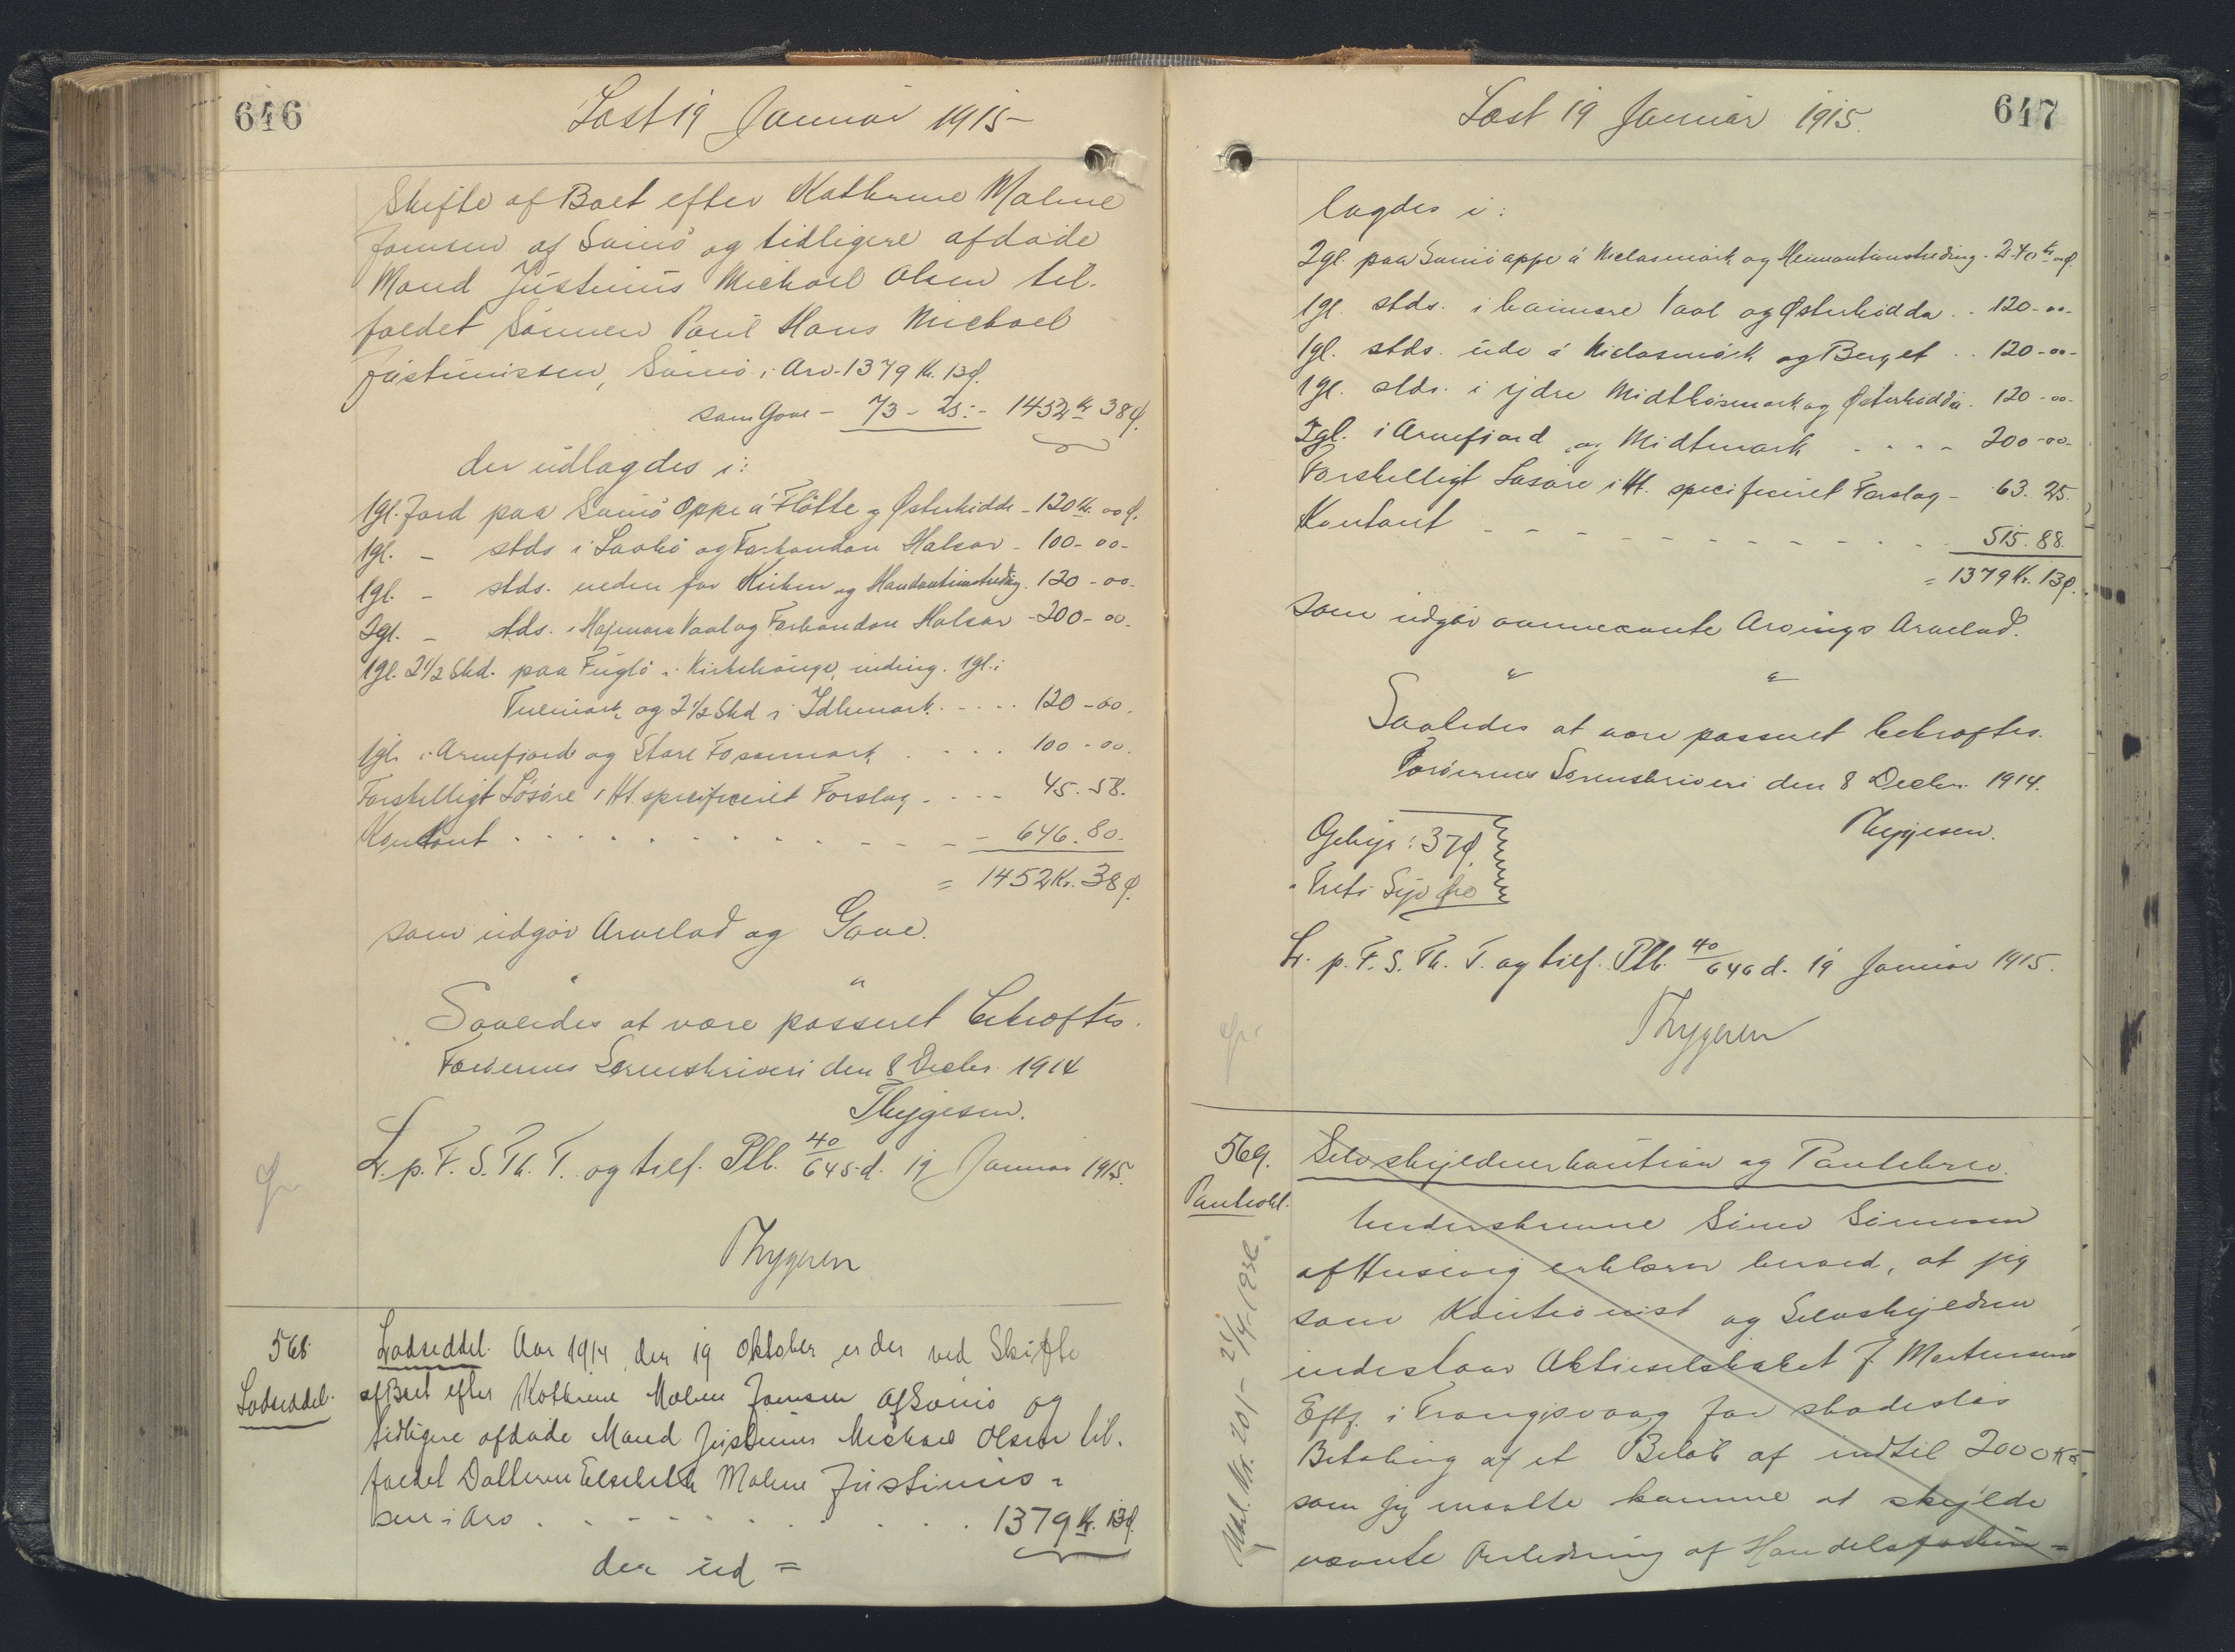 646
Læst 19 Januar 1915-
Skifte af Boet efter Kathrine Malene
Joensen af Svinø og tidligere afdøde
Mand Justinus Michael Olsen til-
faldet Sønnen Poul Hans Michael
Justinussen, Svinø i Arv - 1379 Kr. 13 Ø.
som Gave - 73 - 25 :- 1452 Kr 38 Ø.
der udlagdes i:
1 gl. Jord paa Svinø Oppe á Fløtte og Østerhidde - 120 Kr. 00 Ø.
1 gl. - stds i og Forhandan Halsar - 100 - 00 -
1 gl. - stds. neden for Kirken og 120 - 00 -
2 gl. - stds. i Vaal og Forhandan Halsar - 200 - 00 -
1 gl. 2 1/2 Skd. paa Fuglø i indeng. 1 gl. i
og 2 1/2 Skd i .... 120 - 00.
1 gl. i Arnefjord og Store .... 100 - 00.
Forskelligt Løsøre i Ht. specificeret Forslag .... 45. 58.
Kontant .... 646. 80.
= 1452 Kr. 38 Ø.
som udgør Arvelod og Gave.
" "
Saaledes at være passeret bekræftes.
Færøernes Sorenskriveri den 8 Decbr. 1914
Thygesen.
L. p. F. S. Th. T. og tilf. Ptb. 40/645 d. 19 Januar 1915.
Thygesen
568.
Lodseddel.
Lodseddel. Aar 1914 den 19 Oktober er der ved Skifte
af Boet efter Kathrine Malene Joensen af Svinø og
tidligere afdøde Mand Justinus Michael Olsen til-
faldet Datteren Elsebeth Malene Justinus-
sen i Arv .... 1379 Kr. 13 Ø.
der ud =
Læst 19 Januar 1915.
647
lagdes i:
2 gl. paa Svinø oppe á og 240 Kr 00 Ø.
1 gl. stds. i Vaal og Østerhidda .. 120 - 00 -
1 gl. stds. ude á og Berget .. 120 - 00 -
1 gl. stds. i ydre og Østerhidda. 120 - 00 -
2 gl. i Arnefjord og Midtmark .... 200 - 00 -
Forskelligt Løsøre i Ht. specificeret Forslag - 63. 25.
Kontant .... 515. 88.
= 1379 Kr. 13 Ø.
som udgør ovennævnte Arvings Arvelod.
" "
Saaledes at være passeret bekræftes.
Færøernes Sorenskriveri den 8 Decbr. 1914.
Thygesen.
Gebyr: 37 Ø.
Treti Syv Øre
L. p. F. S. Th. T. og tilf. Ptb. 40/646 d. 19 Januar 1915.
Thygesen
569.
Panteobl.
Selvskyldnerkaution og Pantebrev.
Underskrevne Simon Simonsen
af Husevig erklærer herved, at jeg
som Kautionist og Selvskyldner
indestaar Aktieselskabet J. Mortensens
Eftf. i Trangisvaag for skadesløs
Betaling af et Beløb af indtil 2000 Kr.
som jeg maatte komme at skylde
nævnte Anledning af Handelsforbin=